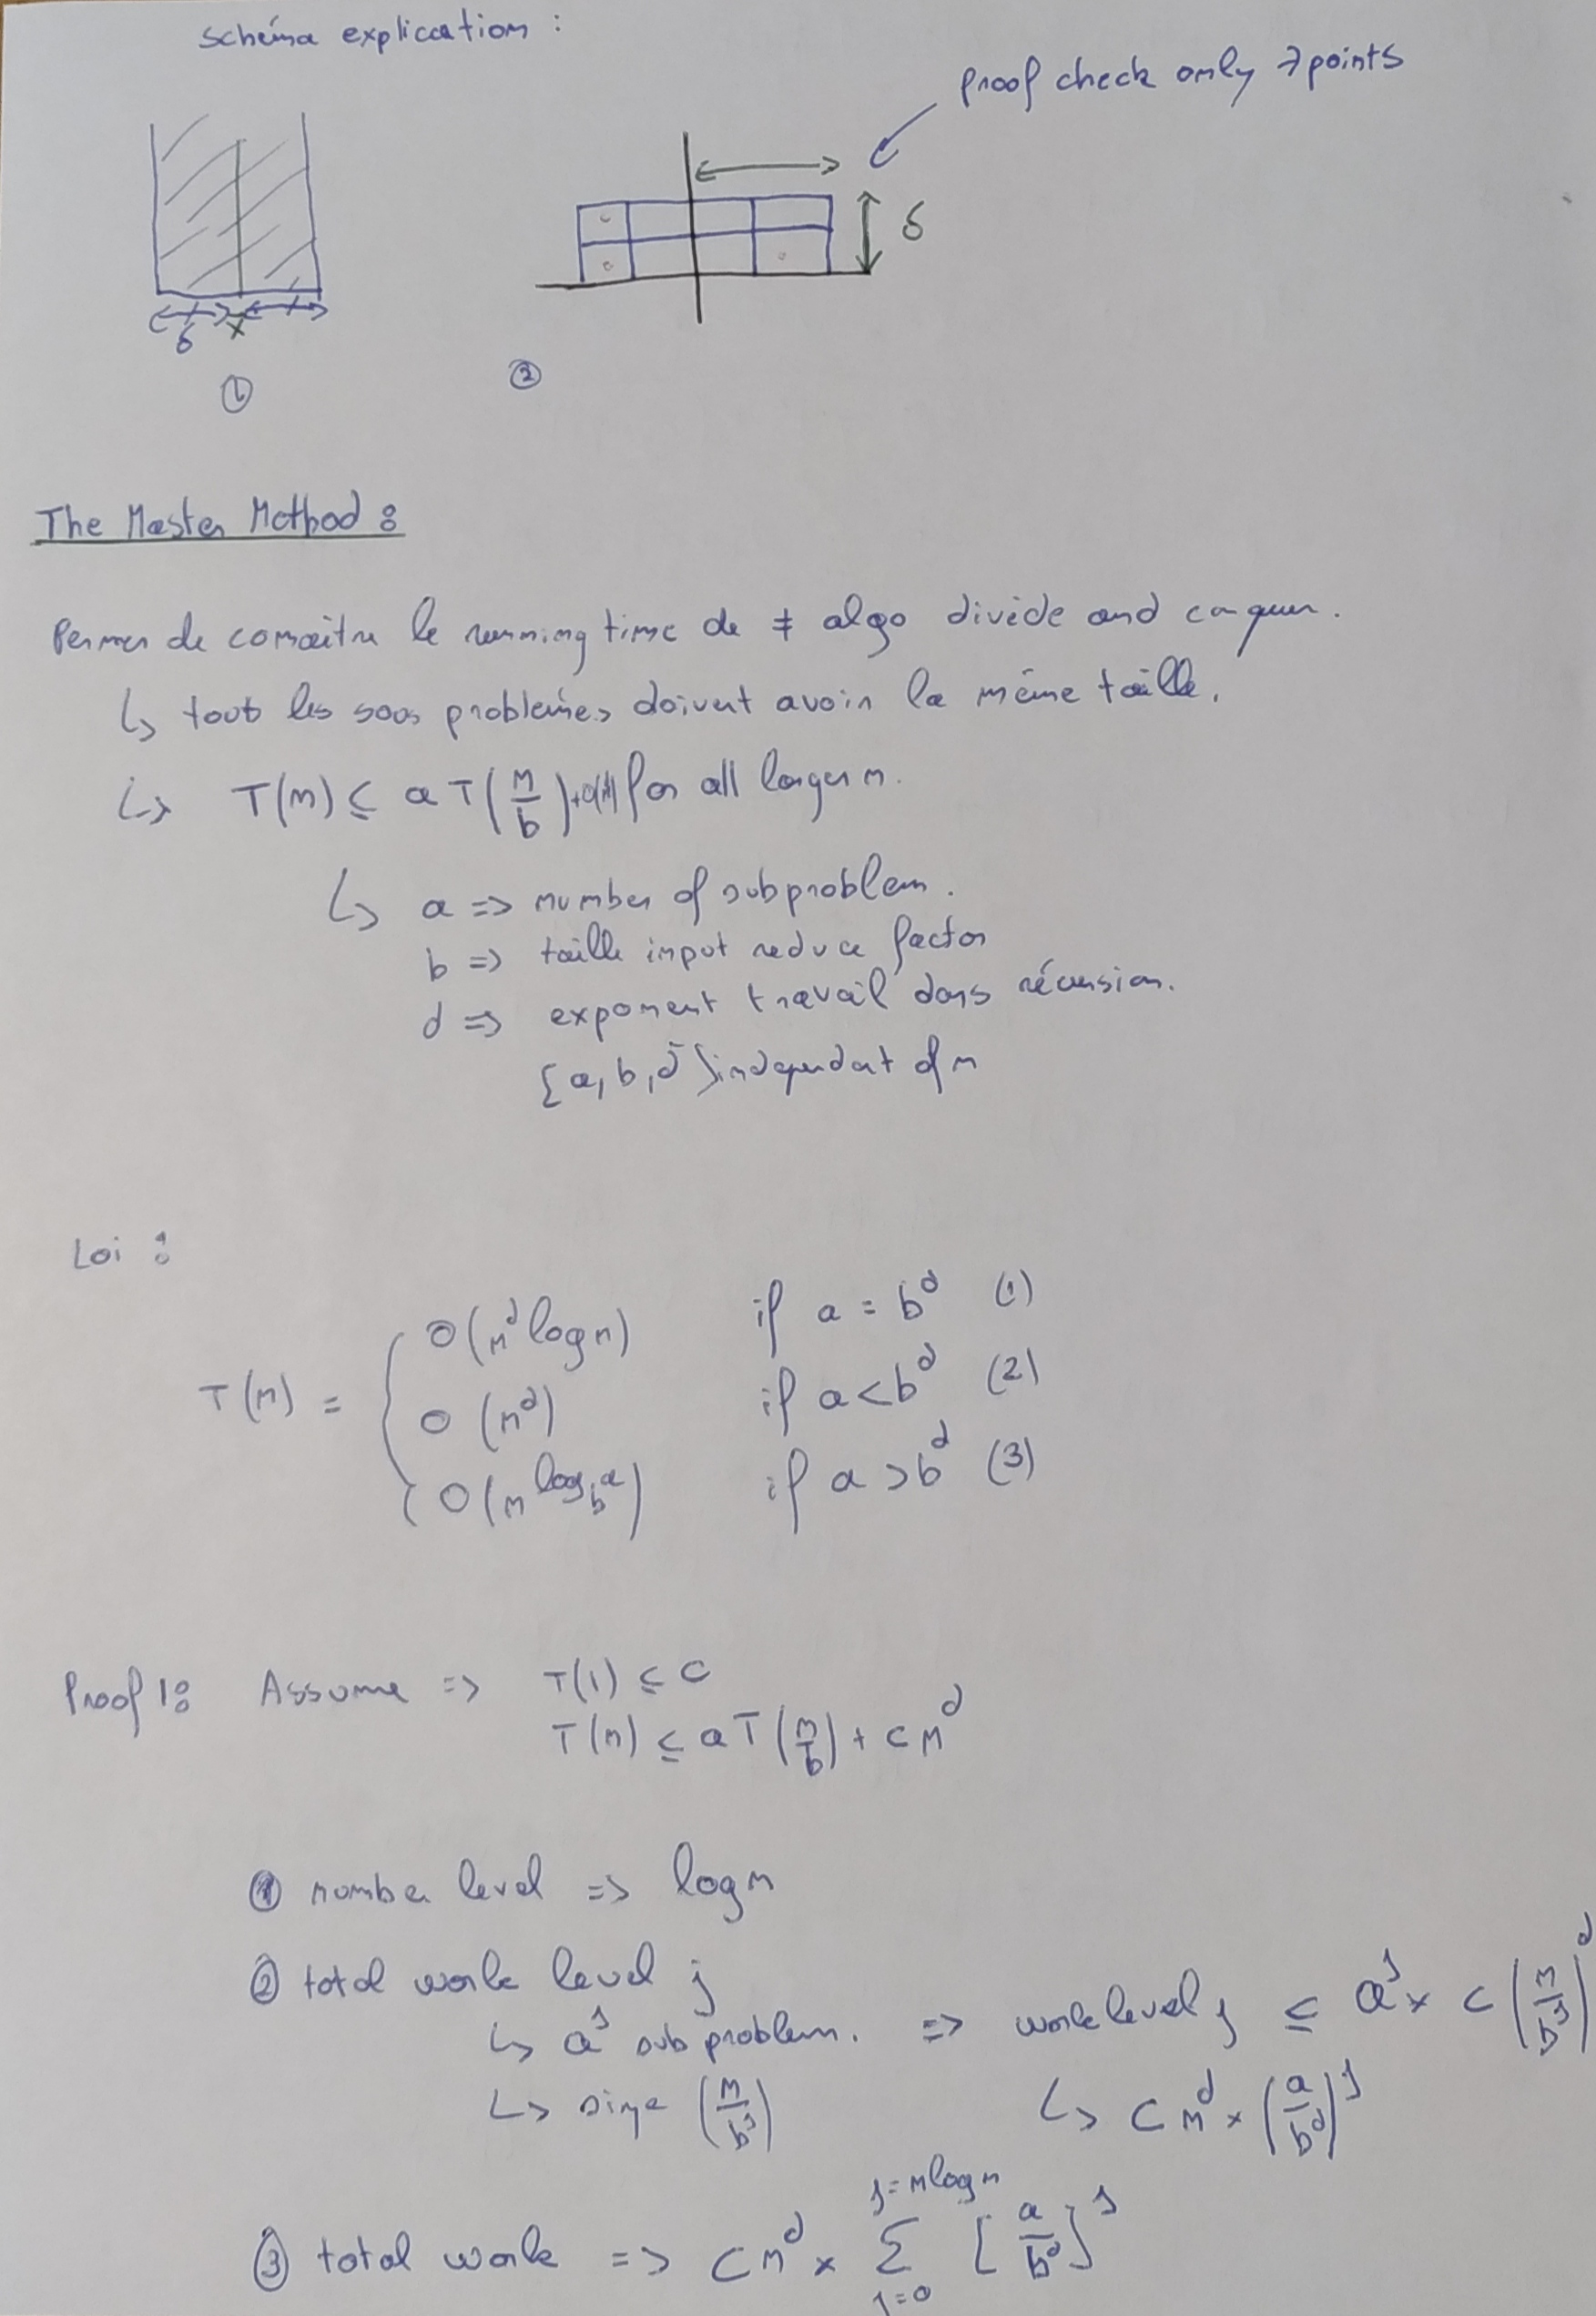 schéma explication :
proof check only 7 points
δ
δ x
① ②
The Master Method :
Permer de connaitre le running time de ≠ algo divide and conquer.
↳ tout les sous problèmes doivent avoir la même taille.
↳ T(n) ≤ a T(n/b) for all larger n.
↳ a => number of subproblem.
b => taille input reduce factor
d => exponent travail dans récursion.
{a, b, d} independant of n
Loi :
T(n) = { O(n^d log n) if a = b^d (1)
O (n^d) if a < b^d (2)
O(n^log_b a) if a > b^d (3)
Proof 1: Assume => T(1) ≤ c
T(n) ≤ a T(n/b) + c n^d
① number level => log n
② total work level j
↳ a^j sub problem. => work level j ≤ a^j × c (n/b^j)^d
↳ size (n/b^j) ↳ c n^d × (a/b^d)^j
j = n log n
③ total work => c n^d × Σ [a/b^d]^j
j=0